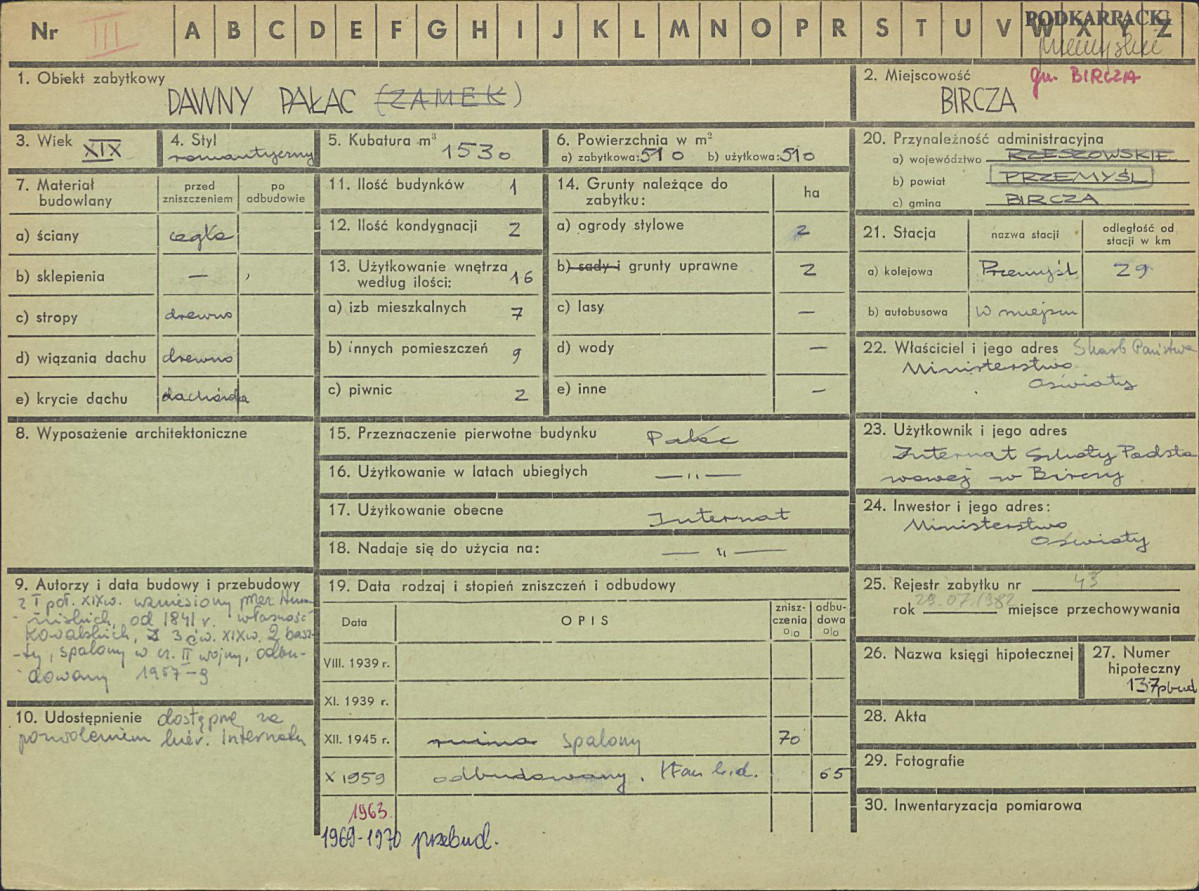 Nr III A B C D E F G H I J K L M N O P R S T U V W X Y Z
PODKARPACKI
gm. BIRCZA
1. Obiekt zabytkowy
DAWNY PAŁAC (ZAMEK)
2. Miejscowość
BIRCZA
3. Wiek XIX
4. Styl
romantyczny
5. Kubatura m³ 1530
6. Powierzchnia w m²
a) zabytkowa: 510 b) użytkowa: 510
7. Materiał budowlany
przed zniszczeniem
po odbudowie
a) ściany cegła
b) sklepienia —
c) stropy drewno
d) wiązania dachu drewno
e) krycie dachu dachówka
8. Wyposażenie architektoniczne
9. Autorzy i data budowy i przebudowy
z I poł. XIXw. wzniesiony przez Hum-
-nickich, od 1841 r. własność
Kowalskich, z 3 ćw. XIXw. 2 basz-
-ty, spalony w cz. II wojny, odbu-
dowany 1957-9
10. Udostępnienie dostępne za
pozwoleniem kier. Internatu
11. Ilość budynków 1
12. Ilość kondygnacji 2
13. Użytkowanie wnętrza
według ilości: 16
a) izb mieszkalnych 7
b) innych pomieszczeń 9
c) piwnic 2
14. Grunty należące do
zabytku:
ha
a) ogrody stylowe 2
b) sady i grunty uprawne 2
c) lasy —
d) wody —
e) inne —
15. Przeznaczenie pierwotne budynku Pałac
16. Użytkowanie w latach ubiegłych — „ —
17. Użytkowanie obecne Internat
18. Nadaje się do użycia na: — „ —
19. Data rodzaj i stopień zniszczeń i odbudowy
Data
OPIS
znisz-
czenia
%
odbu-
dowa
%
VIII. 1939 r.
XI. 1939 r.
XII. 1945 r. ruina spalony 70
X 1959 odbudowany. stan b.d. 65
1963
1969-1970 przebud.
20. Przynależność administracyjna
a) województwo RZESZOWSKIE
b) powiat PRZEMYŚL
c) gmina BIRCZA
21. Stacja
nazwa stacji
odległość od
stacji w km
a) kolejowa Przemyśl 29
b) autobusowa w miejscu
22. Właściciel i jego adres Skarb Państwa
Ministerstwo
Oświaty
23. Użytkownik i jego adres
Internat Szkoły Podsta
wowej w Birczy
24. Inwestor i jego adres:
Ministerstwo
Oświaty
25. Rejestr zabytku nr 43
rok 29.07.1982 miejsce przechowywania
26. Nazwa księgi hipotecznej
27. Numer
hipoteczny
137pbud
28. Akta
29. Fotografie
30. Inwentaryzacja pomiarowa